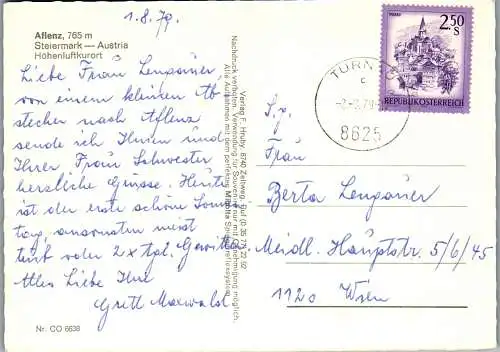 1.8.79.
Aflenz, 765 m
Steiermark — Austria
Höhenluftkurort
Liebe Frau Lenpauer,
von einem kleinen Ab
stecher nach Aflenz
sende ich Ihnen und
Ihrer Frau Schwester
herzliche Grüsse. Heute
ist der erste schöne Sonn
tag, ansonsten meist
trüb oder 2x tgl. Gewitter.
Alles Liebe Ihre
Gretl
Nr. CO 6638
Verlag F. Hruby, 8740 Zeltweg, Ruf (0 35 77) 22 92
Nachdruck verboten. Verwendung für Souvenirs nur mit Genehmigung möglich.
Alle Aufnahmen mit dem perfekten Minolta Spiegelreflexsystem.
2.50
S
REPUBLIK ÖSTERREICH
TURNAU
c
8625
S. g.
Frau
Berta Lenpauer
Meidl. Hauptstr 5/6/45
1120 Wien